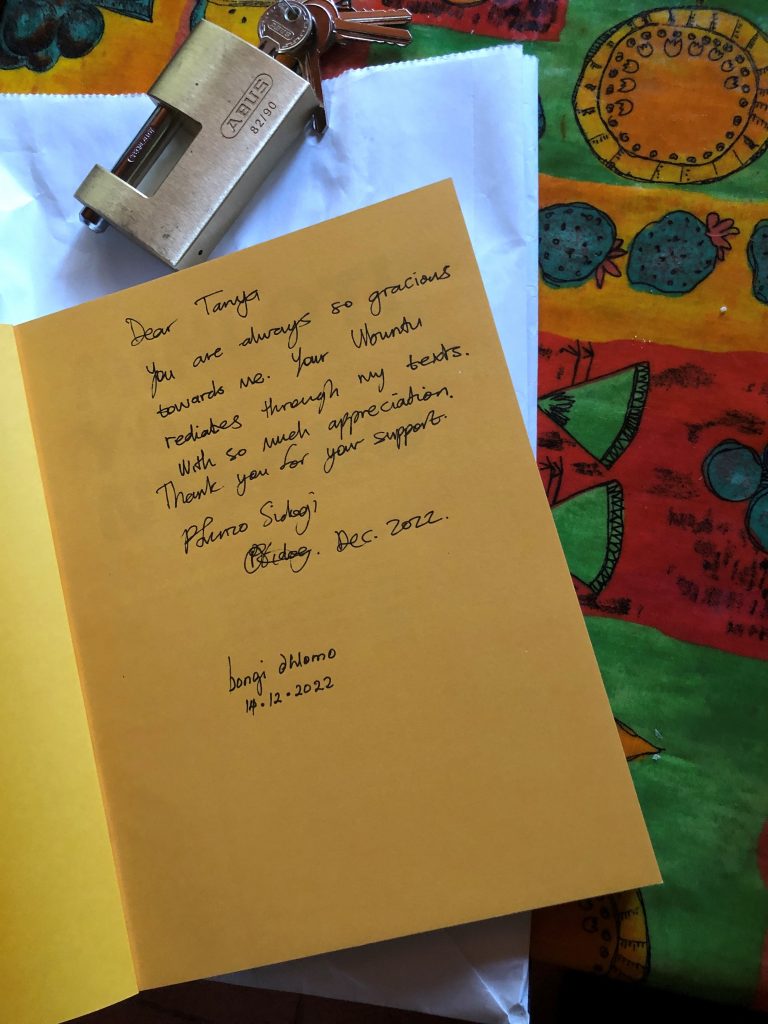 ABUS
82/90
Dear Tanya
You are always so gracious
towards me. Your Ubuntu
rediates through my texts.
With so much appreciation.
Thank you for your support.
Dec. 2022.
bongi dhlomo
14.12.2022